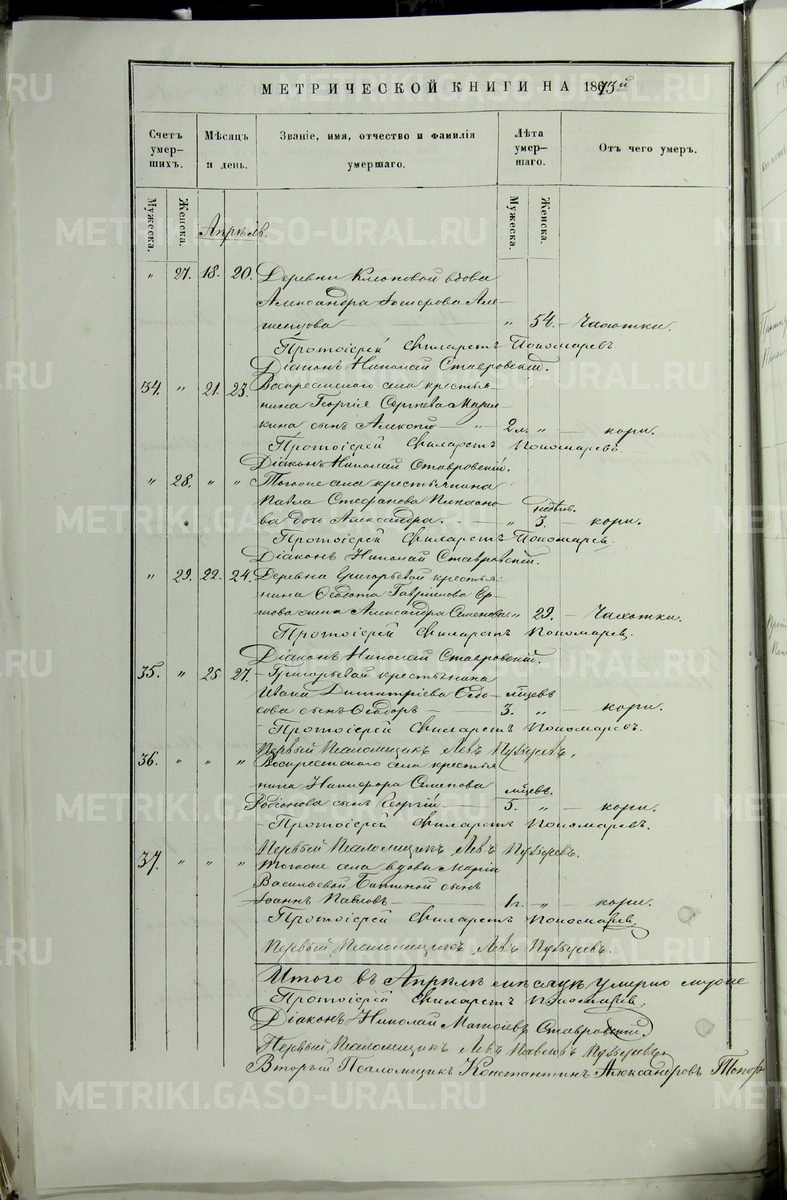 МЕТРИЧЕСКОЙ КНИГИ НА 1873й
Счетъ умер-шихъ.
Мѣсяцъ и день.
Званіе, имя, отчество и фамилія умершаго.
Лѣта умер-шаго.
Отъ чего умеръ.
Мужеска. Женска. Мужеска. Женска.
Апрѣль.
" 27. 18. 20. Деревни Клоповой вдова
Александра
" 54. — Чахотки.
Протоіерей Филаретъ Пономаревъ.
Діаконъ Николай Ставровскій.
34. " 21. 23. Воскресенскаго села крестья-
нина Георгія Сергѣева
кина сынъ Алексѣй — 2 л. " — кори.
Протоіерей Филаретъ Пономаревъ
Діаконъ Николай Ставровскій.
" 28. " " Тогоже села крестьянина
Павла Стефанова
ва дочь Александра. — " недѣль. 3. — кори.
Протоіерей Филаретъ Пономаревъ.
Діаконъ Николай Ставровскій.
" 29. 22. 24. Деревни Григорьевой крестья-
нина Ѳедота Гавріилова Ер-
шова жена Александра Семенова " 29. — Чахотки.
Протоіерей Филаретъ Пономаревъ.
Діаконъ Николай Ставровскій.
35. " 25. 27. Григорьевой крестьянина
Ивана Димитріева Ѳедо-
сова сынъ Ѳеодоръ — мѣсяцевъ 3. " — кори.
Протоіерей Филаретъ Пономаревъ.
Первый Псаломщикъ Левъ
36. " " " Воскресенскаго села крестья-
нина Никифора Семенова
Родіонова сынъ Георгій — мѣсяцевъ. 5. " — кори.
Протоіерей Филаретъ Пономаревъ.
Первый Псаломщикъ Левъ
37. " " " Тогоже села вдовы Маріи
Васильевой сынъ
Іоаннъ Павловъ — 1 г. " — кори.
Протоіерей Филаретъ Пономаревъ.
Первый Псаломщикъ Левъ
Итого въ Апрѣлѣ мѣсяцѣ умерло
Протоіерей Филаретъ Пономаревъ.
Діаконъ Николай Матвіевъ Ставровскій.
Первый Псаломщикъ Левъ Павловъ
Второй Псаломщикъ Константинъ Александровъ
METRIKI.GASO-URAL.RU